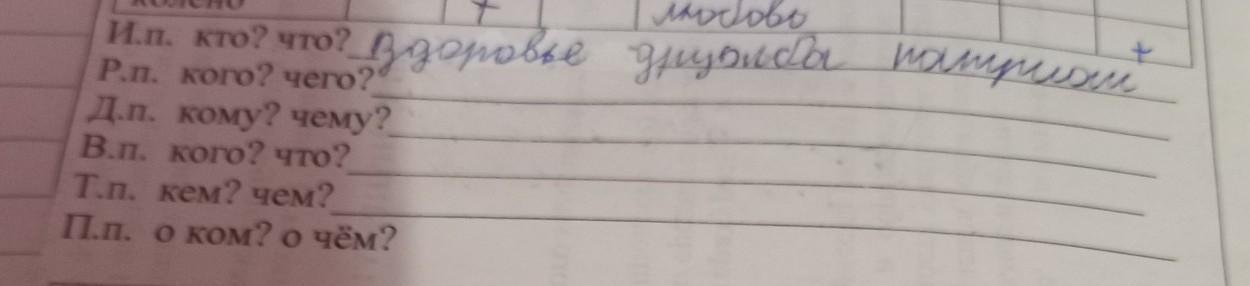 колено + любовь
И.п. кто? что? Здоровье дружба патриот +
Р.п. кого? чего?
Д.п. кому? чему?
В.п. кого? что?
Т.п. кем? чем?
П.п. о ком? о чём?